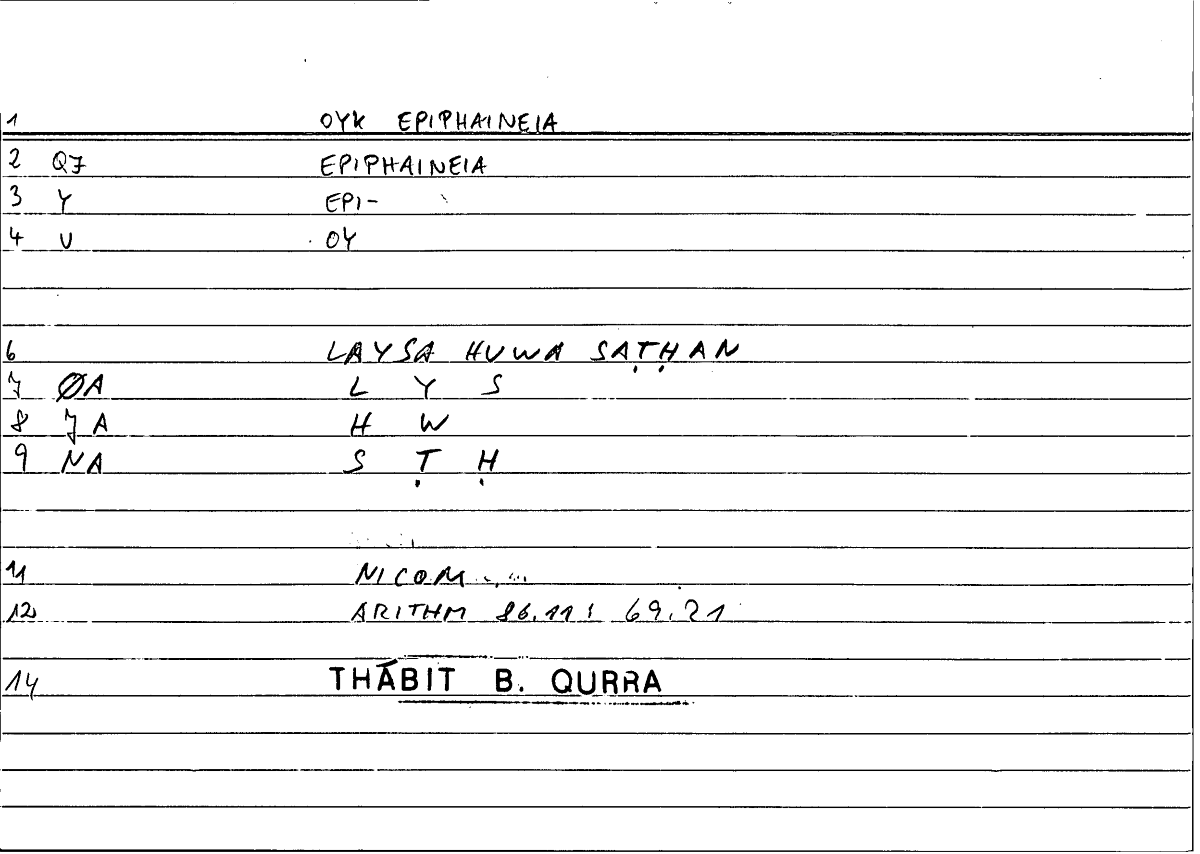 1 OYK EPIPHAINEIA
2 Q7 EPIPHAINEIA
3 Y EPI-
4 U OY
6 LAYSA HUWA SAṬḤAN
7 ØA L Y S
8 7A H W
9 NA S Ṭ Ḥ
11 NICOM
12 ARITHM 86.11 : 69.21
14 THĀBIT B. QURRA